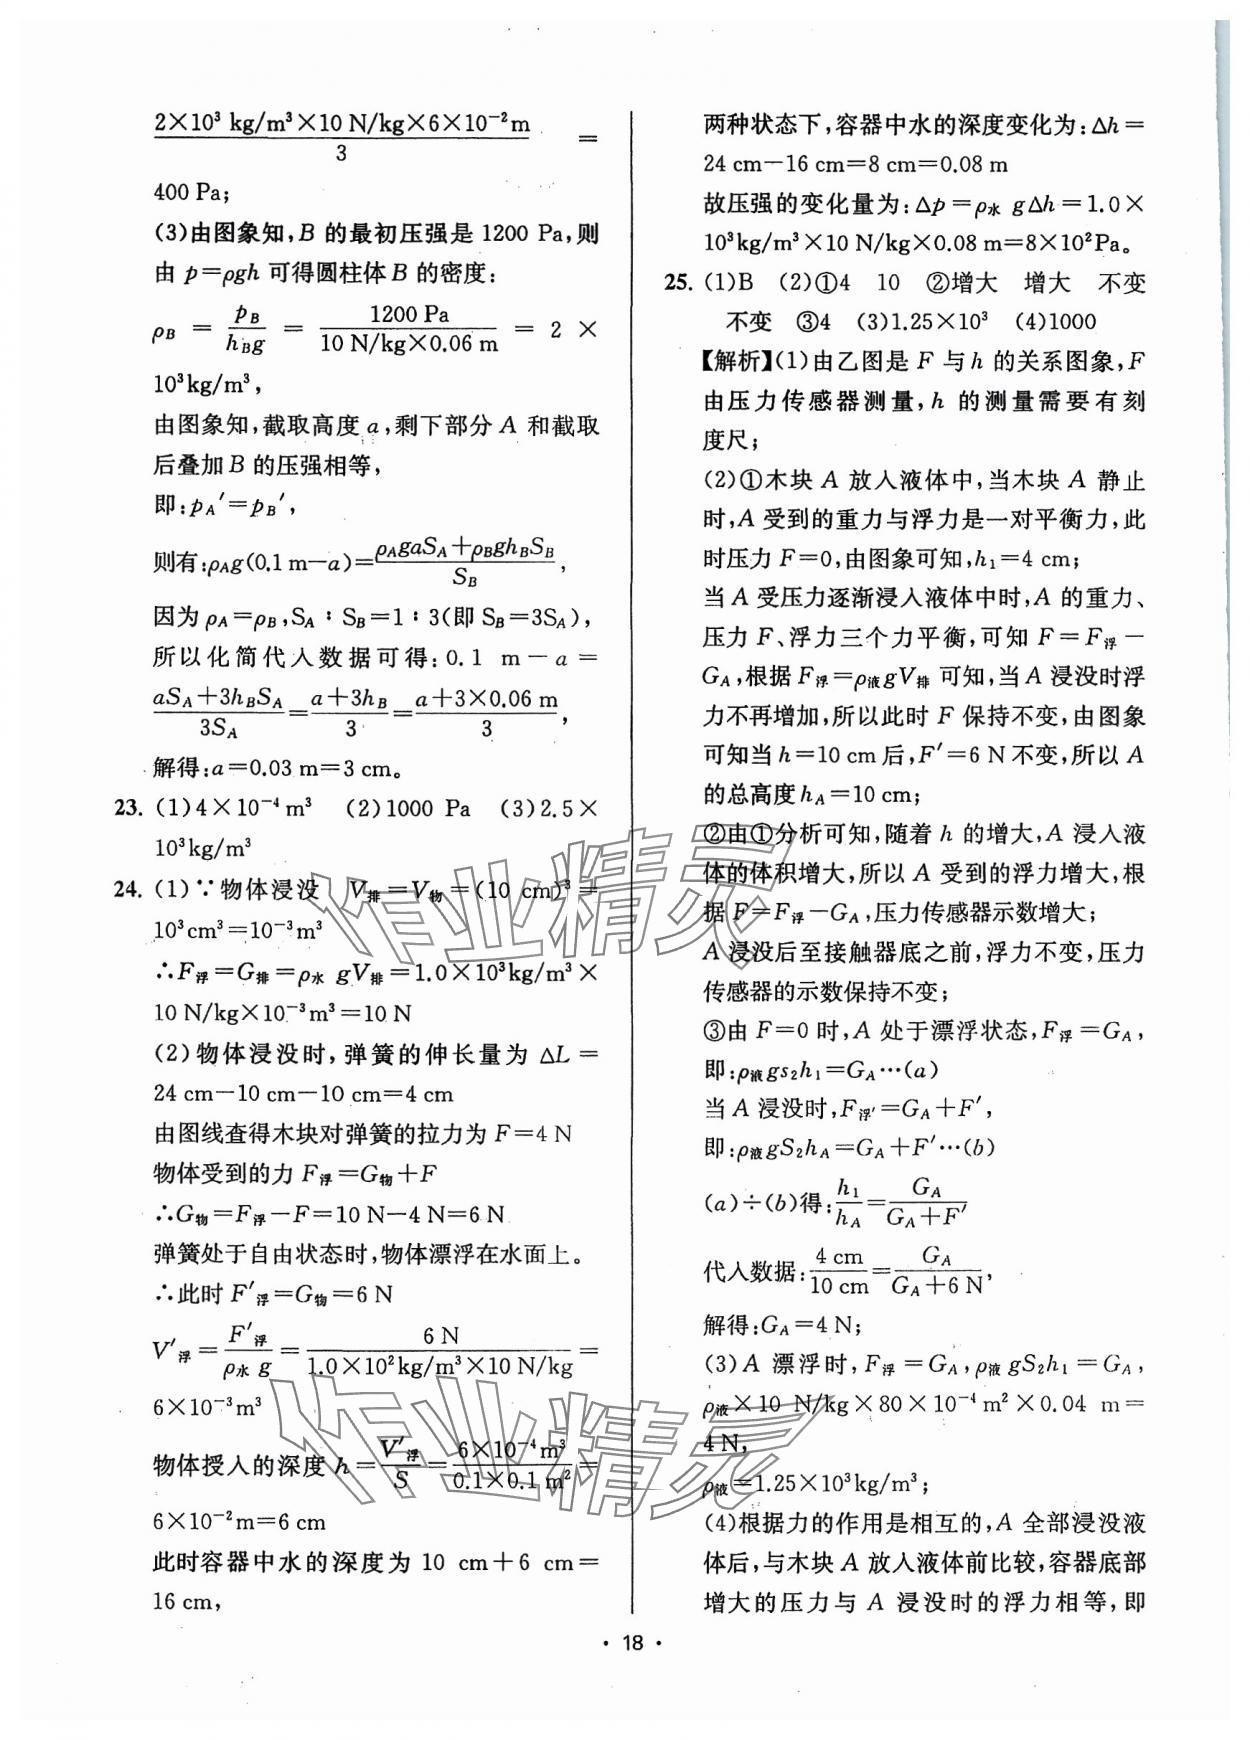 2×10³ kg/m³×10 N/kg×6×10⁻²m / 3 =
400 Pa;
(3)由图象知,B 的最初压强是 1200 Pa,则
由 p=ρgh 可得圆柱体 B 的密度:
ρB = pB/hBg = 1200 Pa / 10 N/kg×0.06 m = 2 ×
10³kg/m³,
由图象知,截取高度 a,剩下部分 A 和截取
后叠加 B 的压强相等,
即:pA′=pB′,
则有:ρAg(0.1 m−a)=(ρAgaSA+ρBghBSB)/SB,
因为 ρA=ρB,SA∶SB=1∶3(即 SB=3SA),
所以化简代入数据可得:0.1 m−a=
(aSA+3hBSA)/3SA=(a+3hB)/3=(a+3×0.06 m)/3,
解得:a=0.03 m=3 cm。
23. (1)4×10⁻⁴m³ (2)1000 Pa (3)2.5×
10³kg/m³
24. (1)∵物体浸没 V排=V物=(10 cm)³=
10³cm³=10⁻³m³
∴F浮=G排=ρ水 gV排=1.0×10³kg/m³×
10 N/kg×10⁻³m³=10 N
(2)物体浸没时,弹簧的伸长量为 ΔL=
24 cm−10 cm−10 cm=4 cm
由图线查得木块对弹簧的拉力为 F=4 N
物体受到的力 F浮=G物+F
∴G物=F浮−F=10 N−4 N=6 N
弹簧处于自由状态时,物体漂浮在水面上。
∴此时 F′浮=G物=6 N
V′浮=F′浮/ρ水 g=6 N / 1.0×10²kg/m³×10 N/kg=
6×10⁻³m³
物体授入的深度 h=V′浮/S=6×10⁻⁴m³/0.1×0.1 m²=
6×10⁻²m=6 cm
此时容器中水的深度为 10 cm+6 cm=
16 cm,
两种状态下,容器中水的深度变化为:Δh=
24 cm−16 cm=8 cm=0.08 m
故压强的变化量为:Δp=ρ水 gΔh=1.0×
10³kg/m³×10 N/kg×0.08 m=8×10²Pa。
25. (1)B (2)①4 10 ②增大 增大 不变
不变 ③4 (3)1.25×10³ (4)1000
【解析】(1)由乙图是 F 与 h 的关系图象,F
由压力传感器测量,h 的测量需要有刻
度尺;
(2)①木块 A 放入液体中,当木块 A 静止
时,A 受到的重力与浮力是一对平衡力,此
时压力 F=0,由图象可知,h₁=4 cm;
当 A 受压力逐渐浸入液体中时,A 的重力、
压力 F、浮力三个力平衡,可知 F=F浮−
GA,根据 F浮=ρ液gV排 可知,当 A 浸没时浮
力不再增加,所以此时 F 保持不变,由图象
可知当 h=10 cm后,F′=6 N不变,所以 A
的总高度 hA=10 cm;
②由①分析可知,随着 h 的增大,A 浸入液
体的体积增大,所以 A 受到的浮力增大,根
据 F=F浮−GA,压力传感器示数增大;
A 浸没后至接触器底之前,浮力不变,压力
传感器的示数保持不变;
③由 F=0 时,A 处于漂浮状态,F浮=GA,
即:ρ液gs₂h₁=GA…(a)
当 A 浸没时,F浮′=GA+F′,
即:ρ液gS₂hA=GA+F′…(b)
(a)÷(b)得:h₁/hA=GA/(GA+F′)
代入数据:4 cm/10 cm=GA/(GA+6 N),
解得:GA=4 N;
(3)A 漂浮时,F浮=GA,ρ液 gS₂h₁=GA,
ρ液×10 N/kg×80×10⁻⁴m²×0.04 m=
4 N,
ρ液=1.25×10³kg/m³;
(4)根据力的作用是相互的,A 全部浸没液
体后,与木块 A 放入液体前比较,容器底部
增大的压力与 A 浸没时的浮力相等,即
· 18 ·
作业精灵
作业精灵